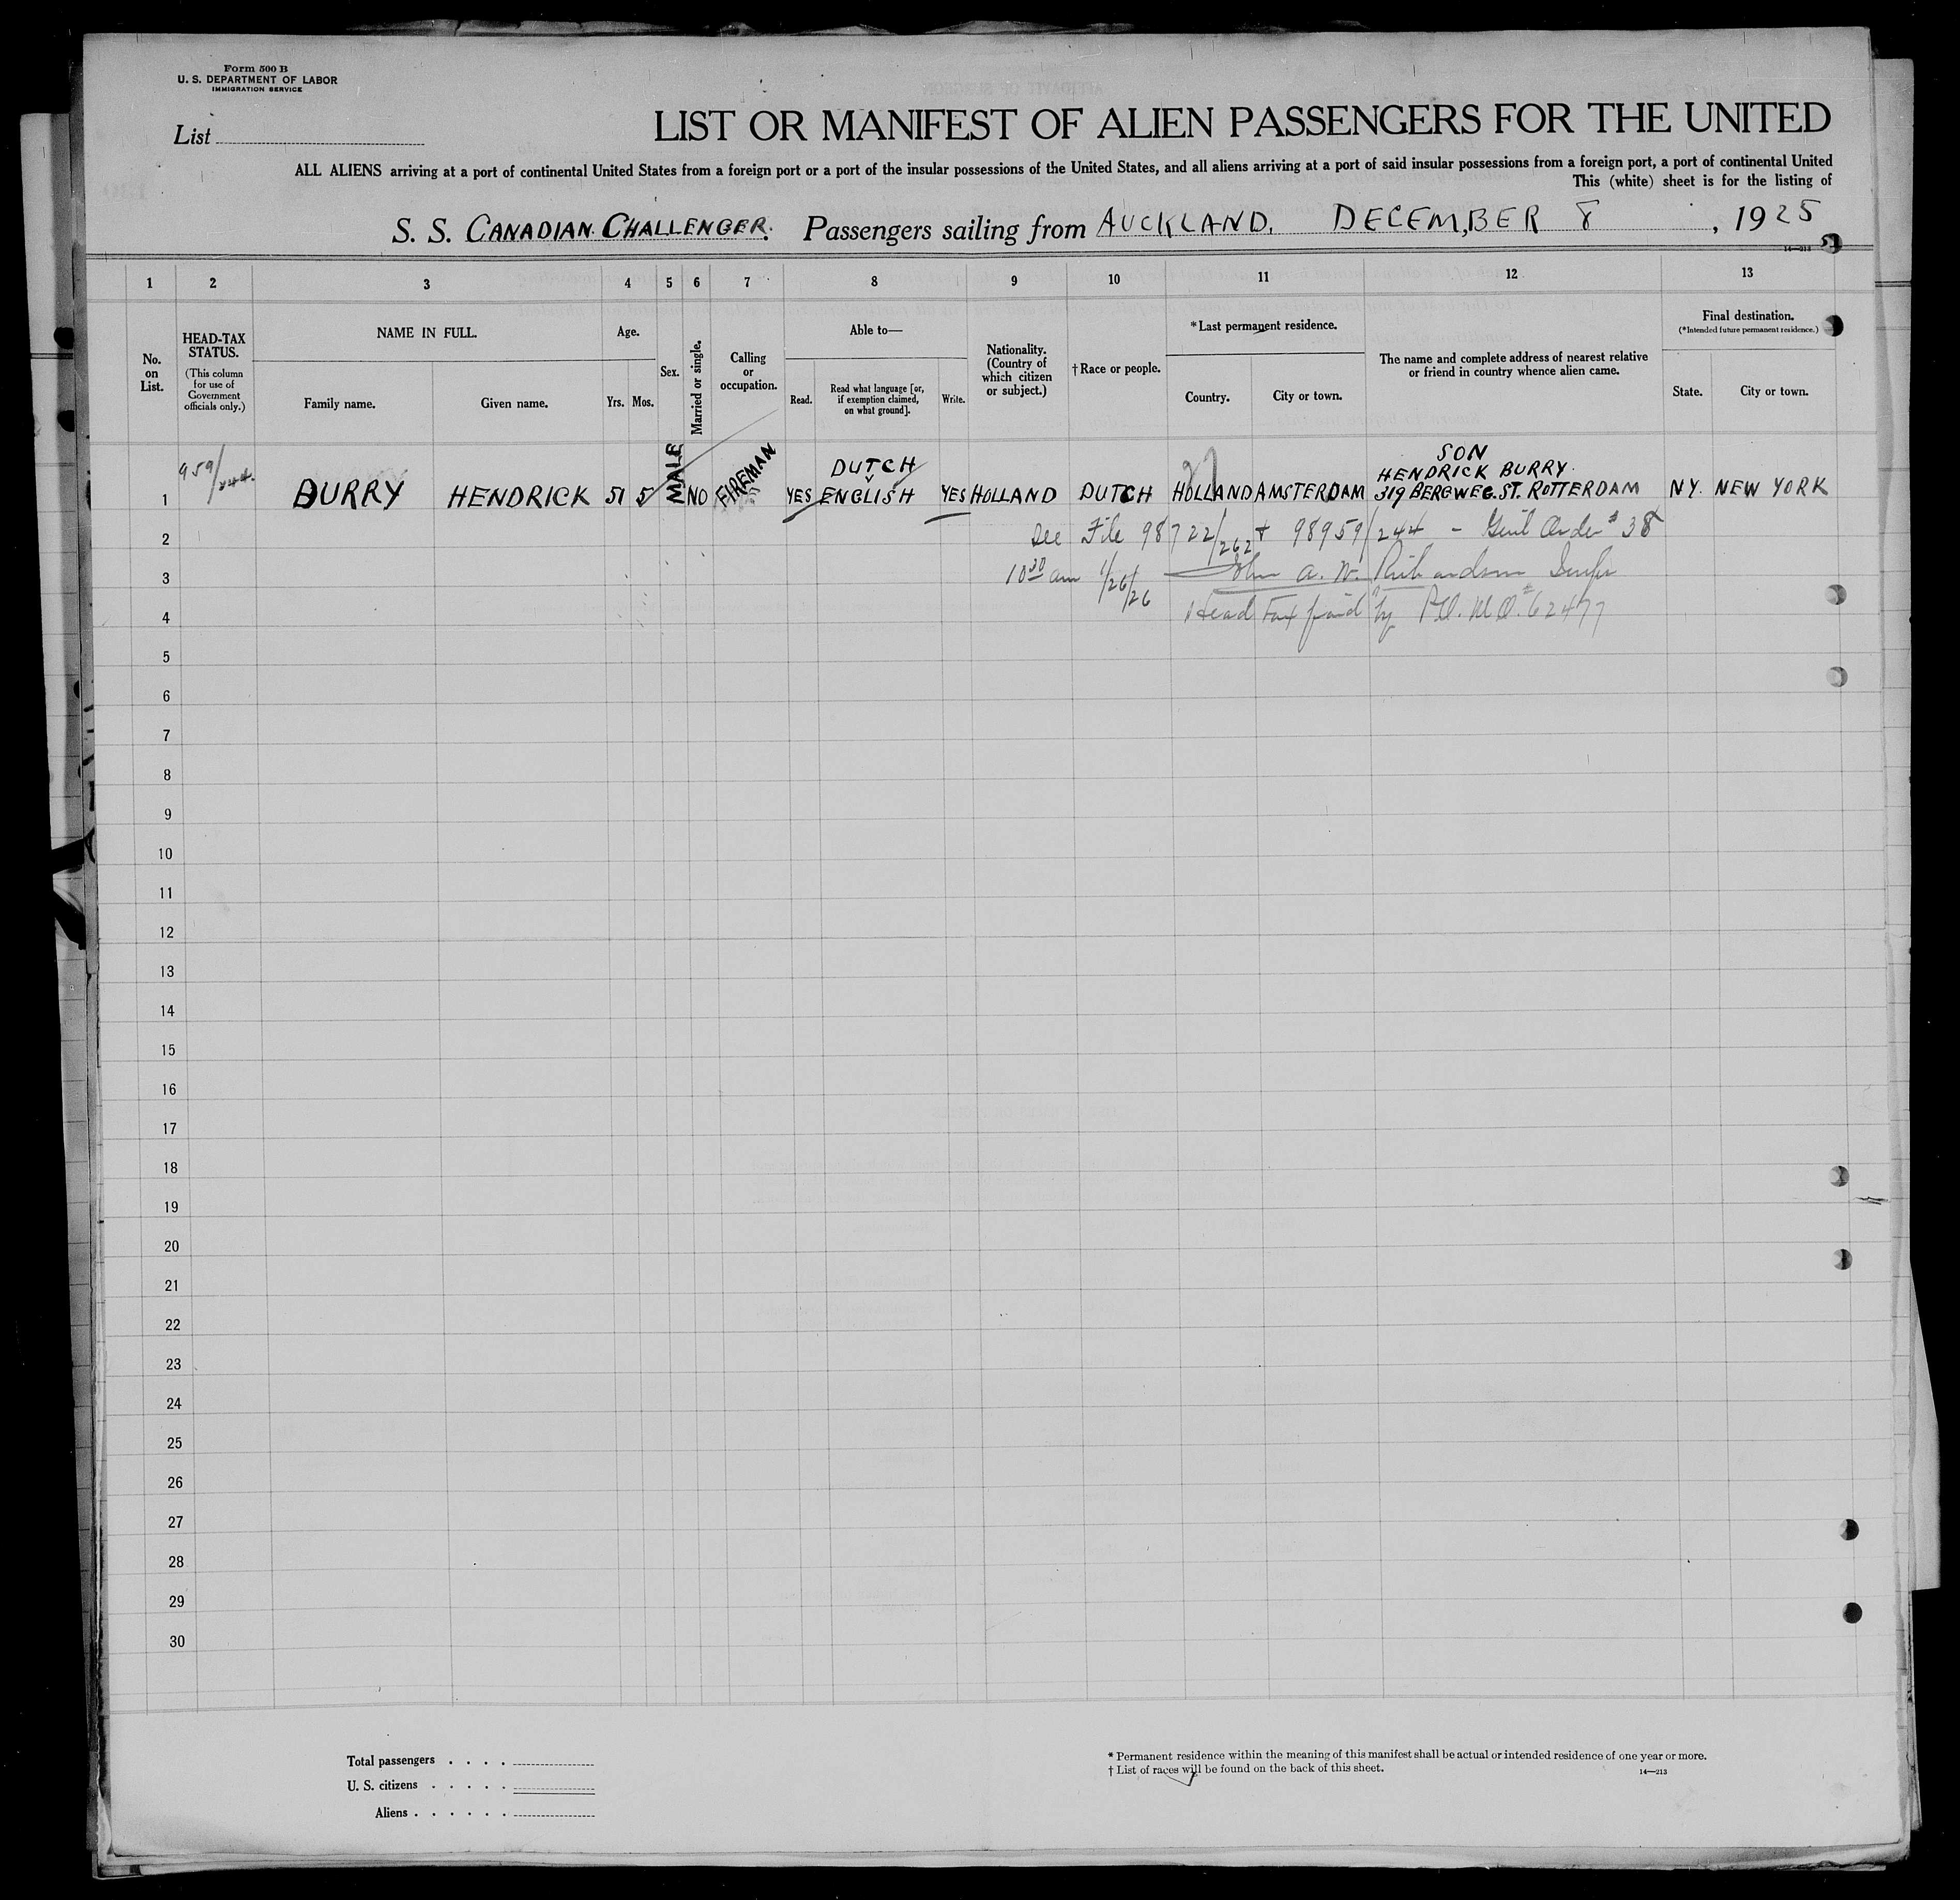 Form 500 B
U. S. DEPARTMENT OF LABOR
IMMIGRATION SERVICE
List
LIST OR MANIFEST OF ALIEN PASSENGERS FOR THE UNITED
ALL ALIENS arriving at a port of continental United States from a foreign port or a port of the insular possessions of the United States, and all aliens arriving at a port of said insular possessions from a foreign port, a port of continental United
This (white) sheet is for the listing of
S. S. CANADIAN CHALLENGER. Passengers sailing from AUCKLAND. DECEMBER 8, 1925
14—213
1 2 3 4 5 6 7 8 9 10 11 12 13
No. on List.
HEAD-TAX STATUS.
(This column for use of Government officials only.)
NAME IN FULL.
Family name. Given name.
Age.
Yrs. Mos.
Sex.
Married or single.
Calling or occupation.
Able to—
Read. Read what language [or, if exemption claimed, on what ground]. Write.
Nationality. (Country of which citizen or subject.)
† Race or people.
*Last permanent residence.
Country. City or town.
The name and complete address of nearest relative or friend in country whence alien came.
Final destination.
(*Intended future permanent residence.)
State. City or town.
1 959/244 BURRY HENDRICK 51 5 MALE NO FIREMAN YES DUTCH ENGLISH YES HOLLAND DUTCH HOLLAND AMSTERDAM SON HENDRICK BURRY. 319 BERGWEG. ST. ROTTERDAM N.Y. NEW YORK
2 See File 98722/262 + 98959/244 - Genl Order # 38
3 10 30 am 1/26/26 John A. W. Richardson
4 Head Tax paid by P.O. M.O. # 62477
5
6
7
8
9
10
11
12
13
14
15
16
17
18
19
20
21
22
23
24
25
26
27
28
29
30
Total passengers . . . .
U. S. citizens . . . . .
Aliens . . . . . .
* Permanent residence within the meaning of this manifest shall be actual or intended residence of one year or more.
† List of races will be found on the back of this sheet.
14—213